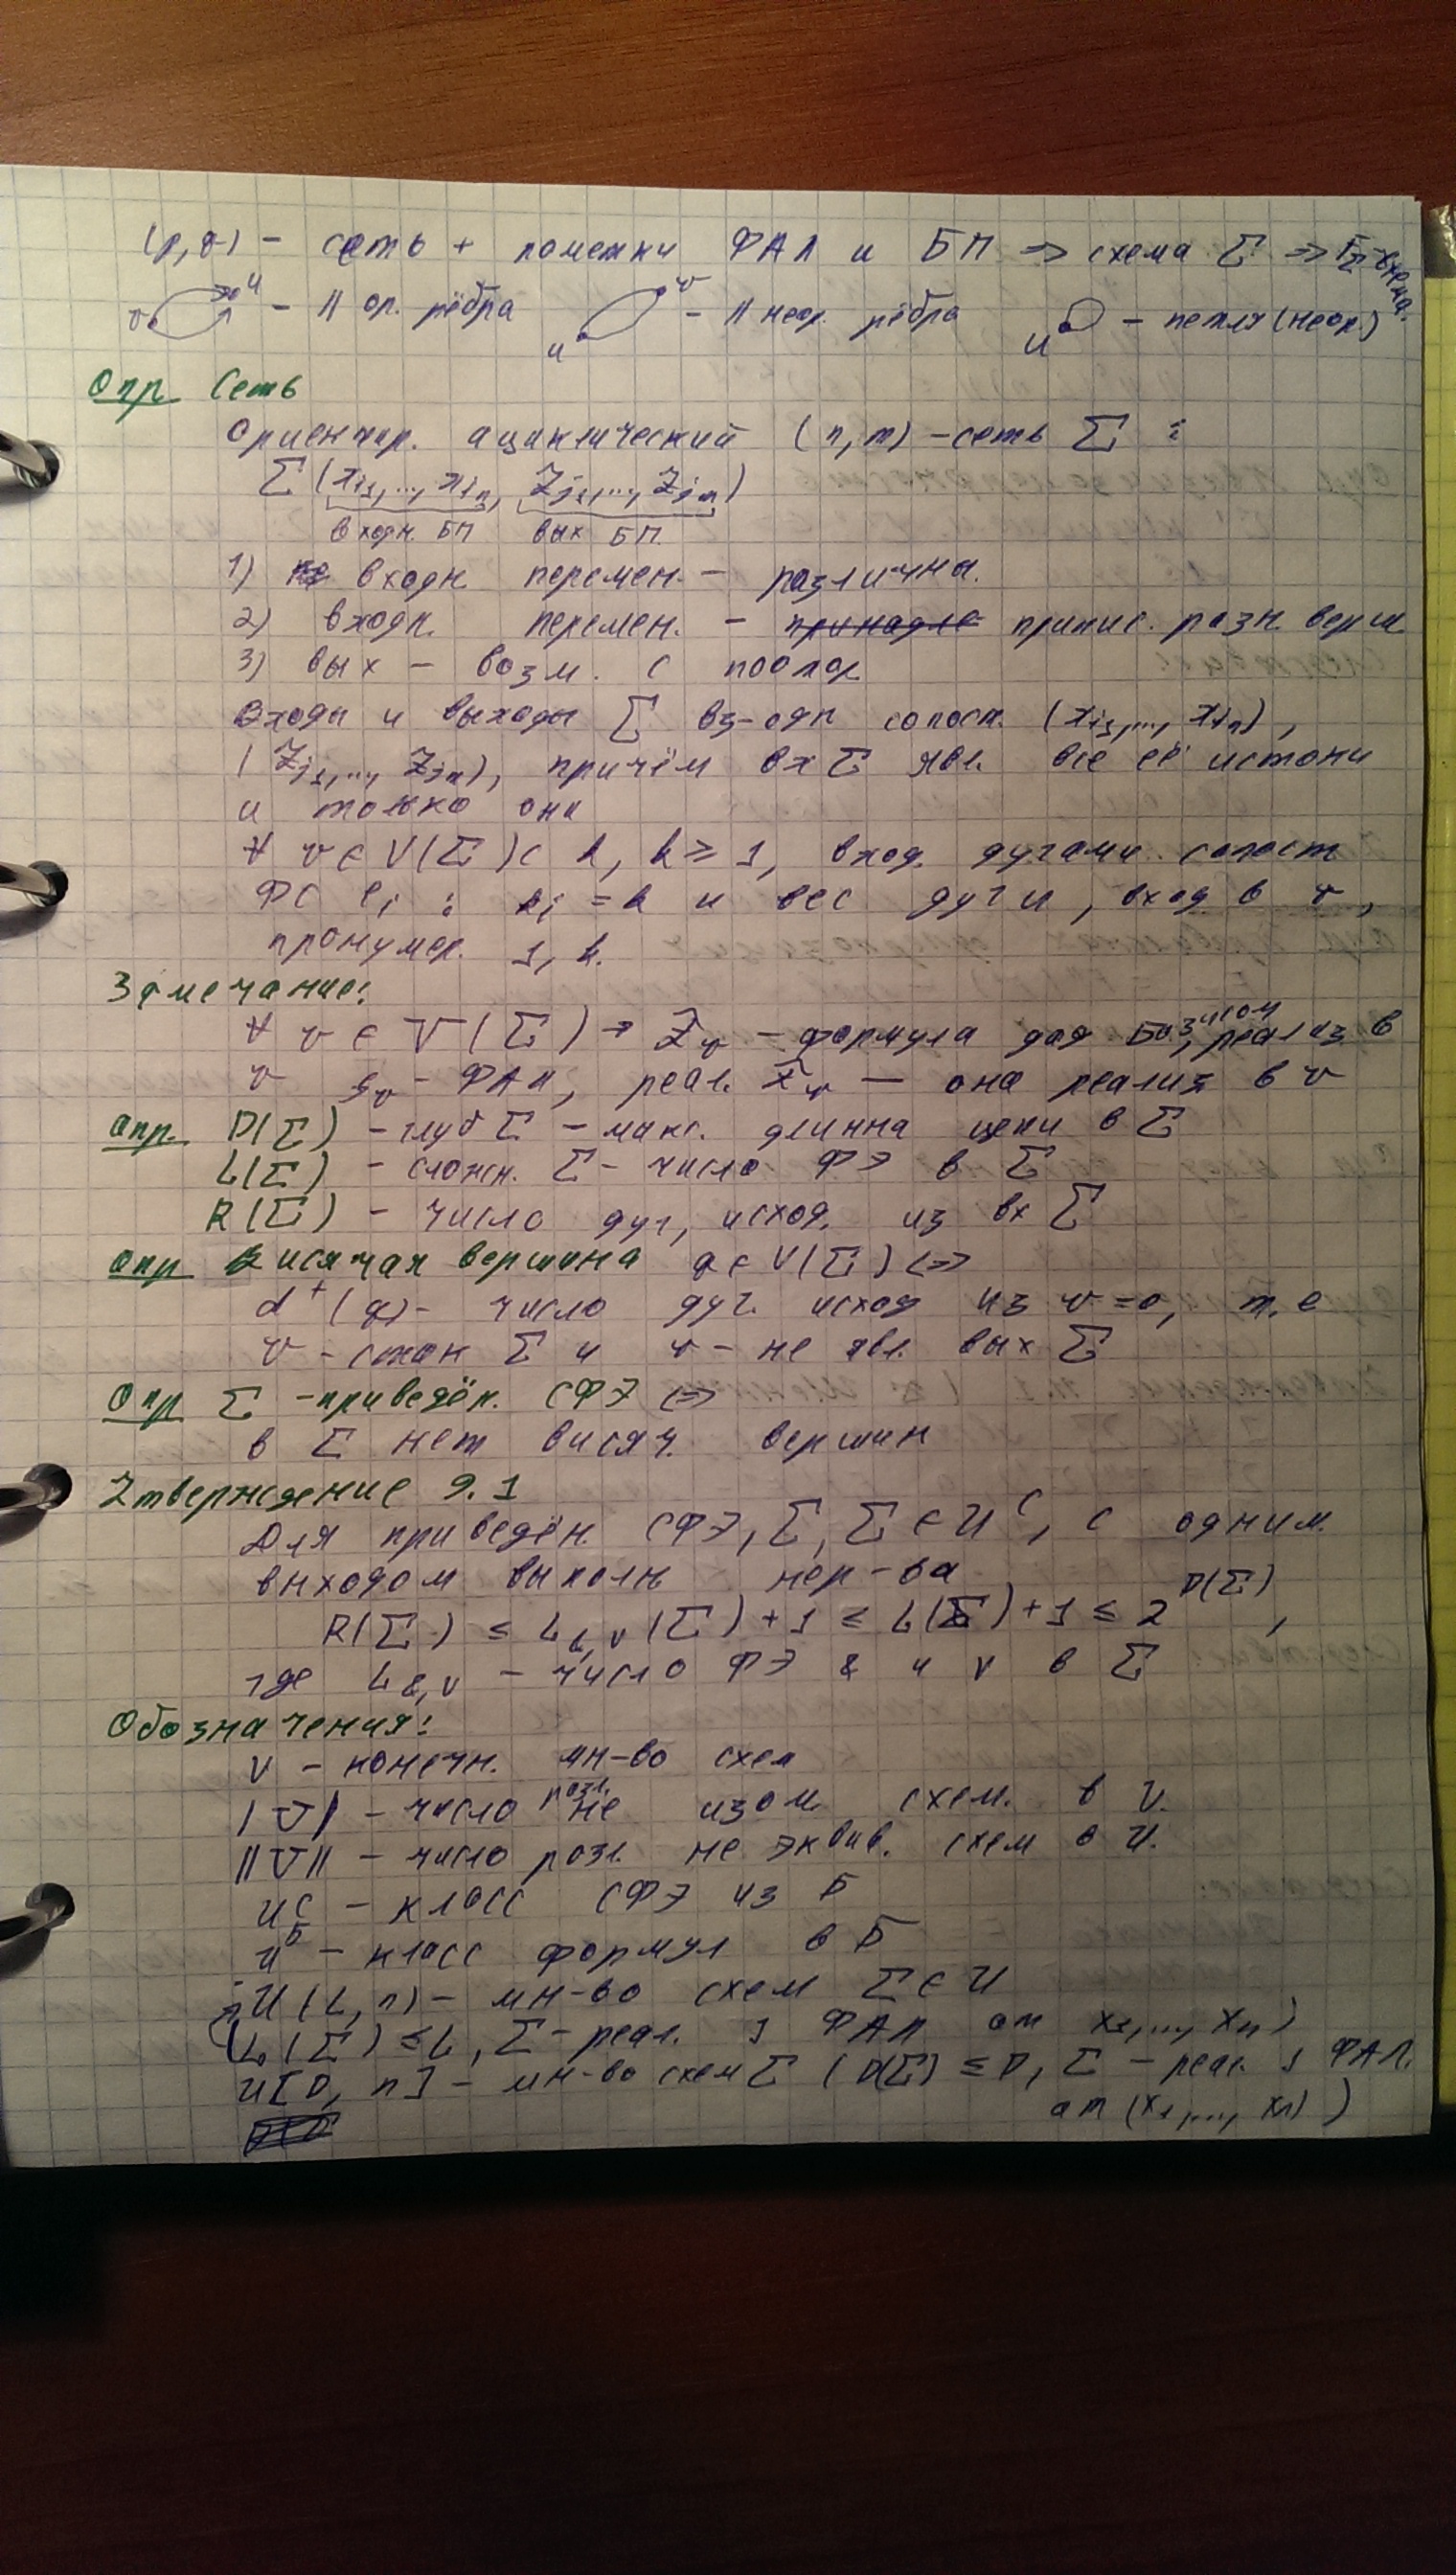 (p,q) - сеть + пометки ФАЛ и БП ⇒ схема Σ ⇒
v u - || ор. рёбра u v - || неор. рёбра u - петля (неор.)
Опр Сеть
Ориентир. ациклический (n,m) - сеть Σ :
Σ (x_{i1},..., x_{in}, z_{j1},..., z_{jn})
входн. БП вых БП.
1) входн перемен. - различны.
2) входн. перемен. - припис. разн. верш
3) вых - возм. с повтор
Входы и выходы Σ вз-одн сопост. (x_{i1},..., x_{in}),
(z_{j1},..., z_{jn}), причём вх Σ явл. все её истоки
и только они
∀ v ∈ V(Σ) с k, k ≥ 1, вход. дугами сопост
ФС e_i : k_i = k и вес дуги, вход в v,
пронумер. 1, k.
Замечание:
∀ v ∈ V(Σ) → z_v - формула над базисом, реализ в
v g_v - ФАЛ, реал. z_v — она реализ в v
Опр. D(Σ) - глуб Σ - макс. длинна цепи в Σ
L(Σ) - сложн. Σ - число ФЭ в Σ
R(Σ) - число дуг, исход. из вх Σ
Опр Висячая вершина a ∈ V(Σ) ⇔
d⁺(a) - число дуг. исход из v = 0, т.е
v - сток Σ и v - не явл. вых Σ
Опр Σ - приведён. СФЭ ⇔
в Σ нет висяч. вершин
Утверждение 9.1
Для приведён. СФЭ, Σ, Σ ∈ U^C, с одним.
выходом выполн нер-ва
R(Σ) ≤ L_{&,v}(Σ) + 1 ≤ L(Σ) + 1 ≤ 2^{D(Σ)},
где L_{&,v} - число ФЭ & и v в Σ
Обозначения:
V - конечн. мн-во схем
|V| - число разл. не изом схем. в U.
||V|| - число разл. не эквив. схем в U.
U^C - класс СФЭ из Б
U^Б - класс формул в Б
U(L, n) - мн-во схем Σ ∈ U
(L(Σ) ≤ L, Σ - реал. 1 ФАЛ от x_1,..., x_n)
U[D, n] - мн-во схем Σ (D(Σ) ≤ D, Σ - реал. 1 ФАЛ.
от (x_1,..., x_n))